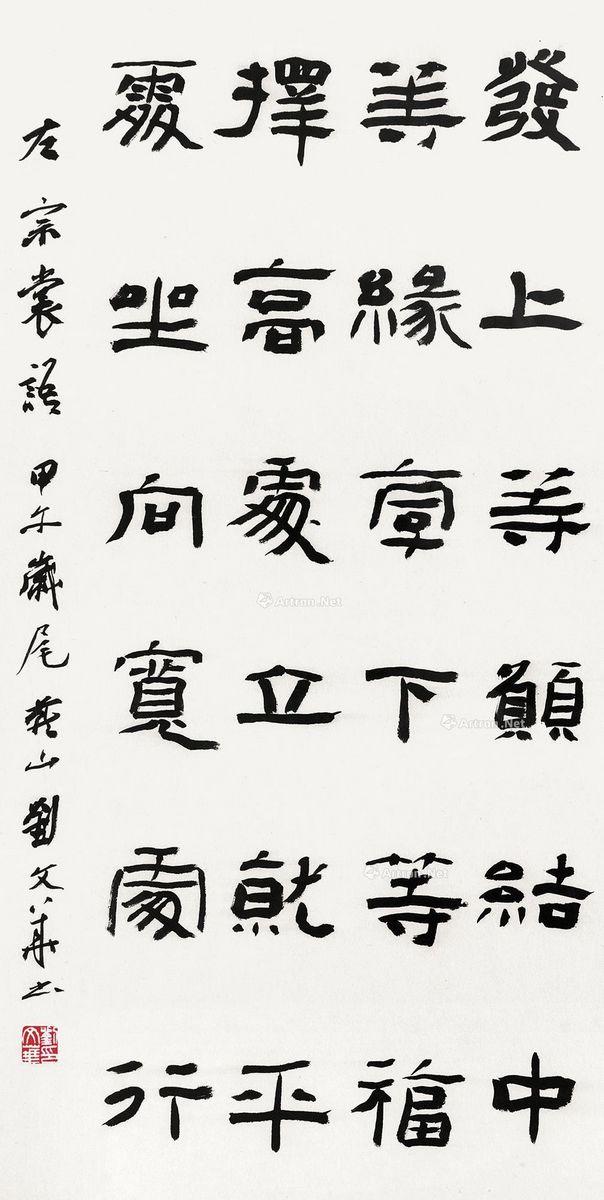 發上等願結中
等緣享下等福
擇高處立就平
處坐向寬處行
左宗棠語 甲午歲尾 燕山劉文華書
劉文華
Artron.Net
Artron.Net
Artron.Net